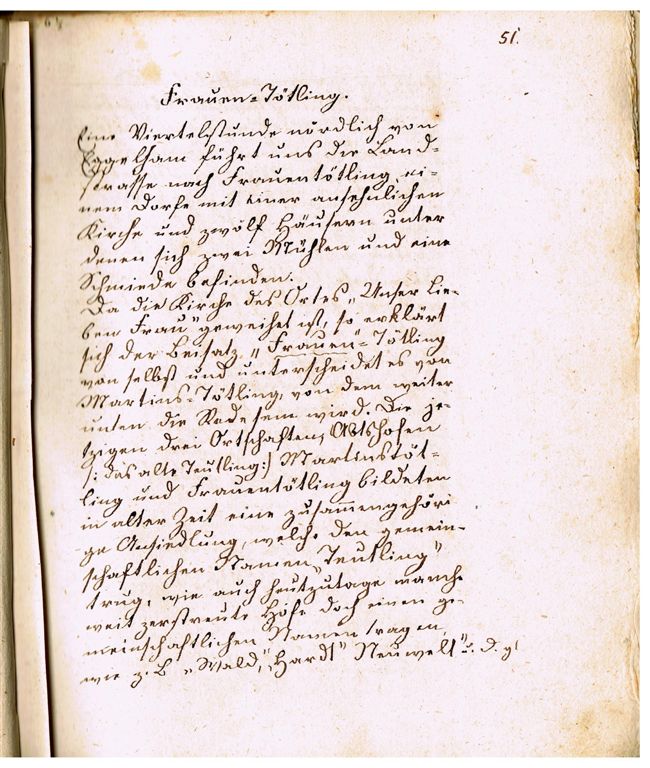 51.
Frauen-Tötling.
Eine Viertelstunde nördlich von
Eggelham führt uns die Land-
strasse nach Frauentötling, ei-
nem Dorfe mit einer ansehnlichen
Kirche und zwölf Häusern unter
denen sich zwei Mühlen und eine
Schmiede befinden.
Da die Kirche des Ortes „Unser Lie-
ben Frau" geweihet ist, so erklärt
sich der Beisatz „Frauen"-Tötling
von selbst und unterscheidet es von
Martins-Tötling, von dem weiter
unten die Rede sein wird. Die je-
tzigen drei Ortschaften, Abtshofen
/: das alte Teutling:/ Martinstöt-
ling und Frauentötling bildeten
in alter Zeit eine zusammengehöri
ge Ansiedlung, welche den gemein-
schaftlichen Namen „Teutling"
trug, wie auch heutzutage manche
weit zerstreute Höfe doch einen ge-
meinschaftlichen Namen tragen,
wie z. B „Wald," „Hardt" Neuwelt" u. d. gl